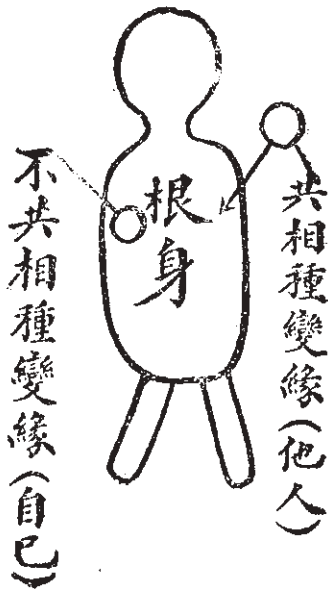 共相種變緣(他人)
根身
不共相種變緣(自已)